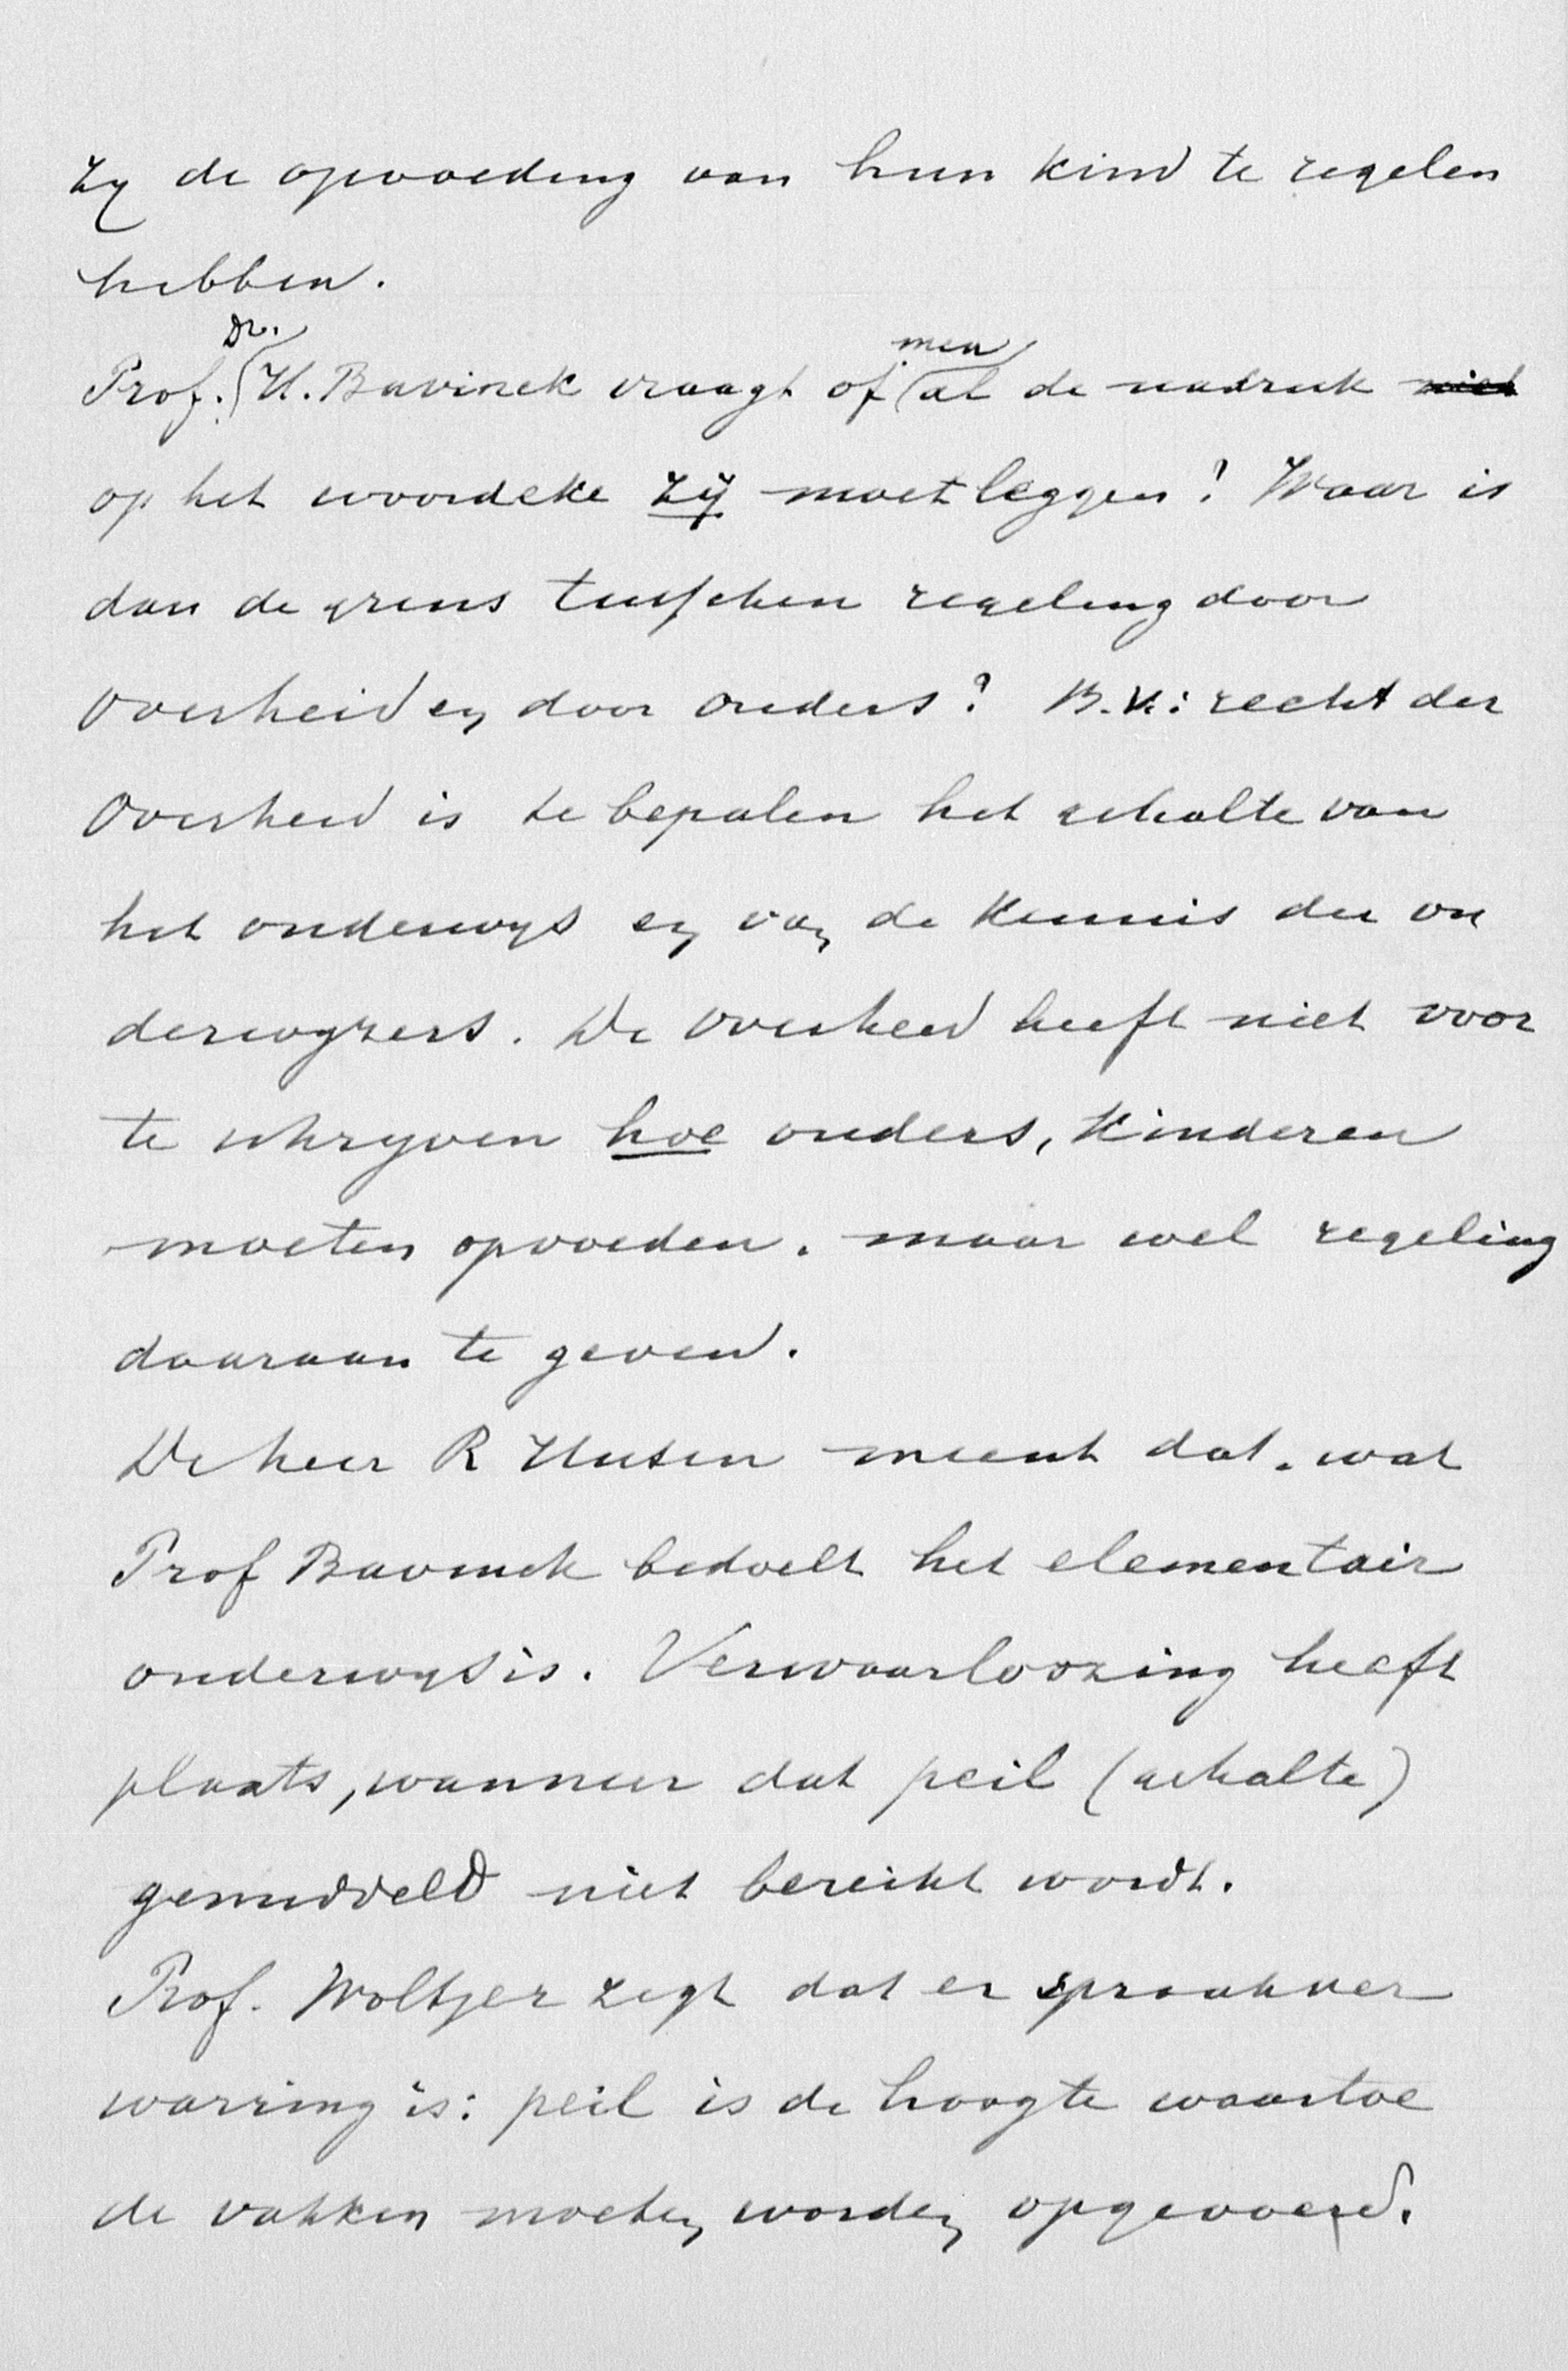 zy de opvoeding van hun kind te regelen
hebben.
Prof. Dr. H. Bavinck vraagt of men al de nadruk niet
op het woordeke zij moet leggen? Waar is
dan de grens tusschen regeling door
Overheid en door ouders? B.v.: recht der
Overheid is te bepalen het gehalte van
het onderwys en van de kennis der on
derwyzers. De overheid heeft niet voor
te schryven hoe ouders, kinderen
moeten opvoeden. maar wel regeling
daaraan te geven.
De heer R meent dat. wat
Prof Bavinck bedoelt het elementair
onderwys is. Verwaarloozing heeft
plaats, wanneer dat peil (gehalte)
gemiddeld niet bereikt wordt.
Prof. Woltjer zegt dat er spraakver
warring is: peil is de hoogte waartoe
de vakken moeten worden opgevoerd.